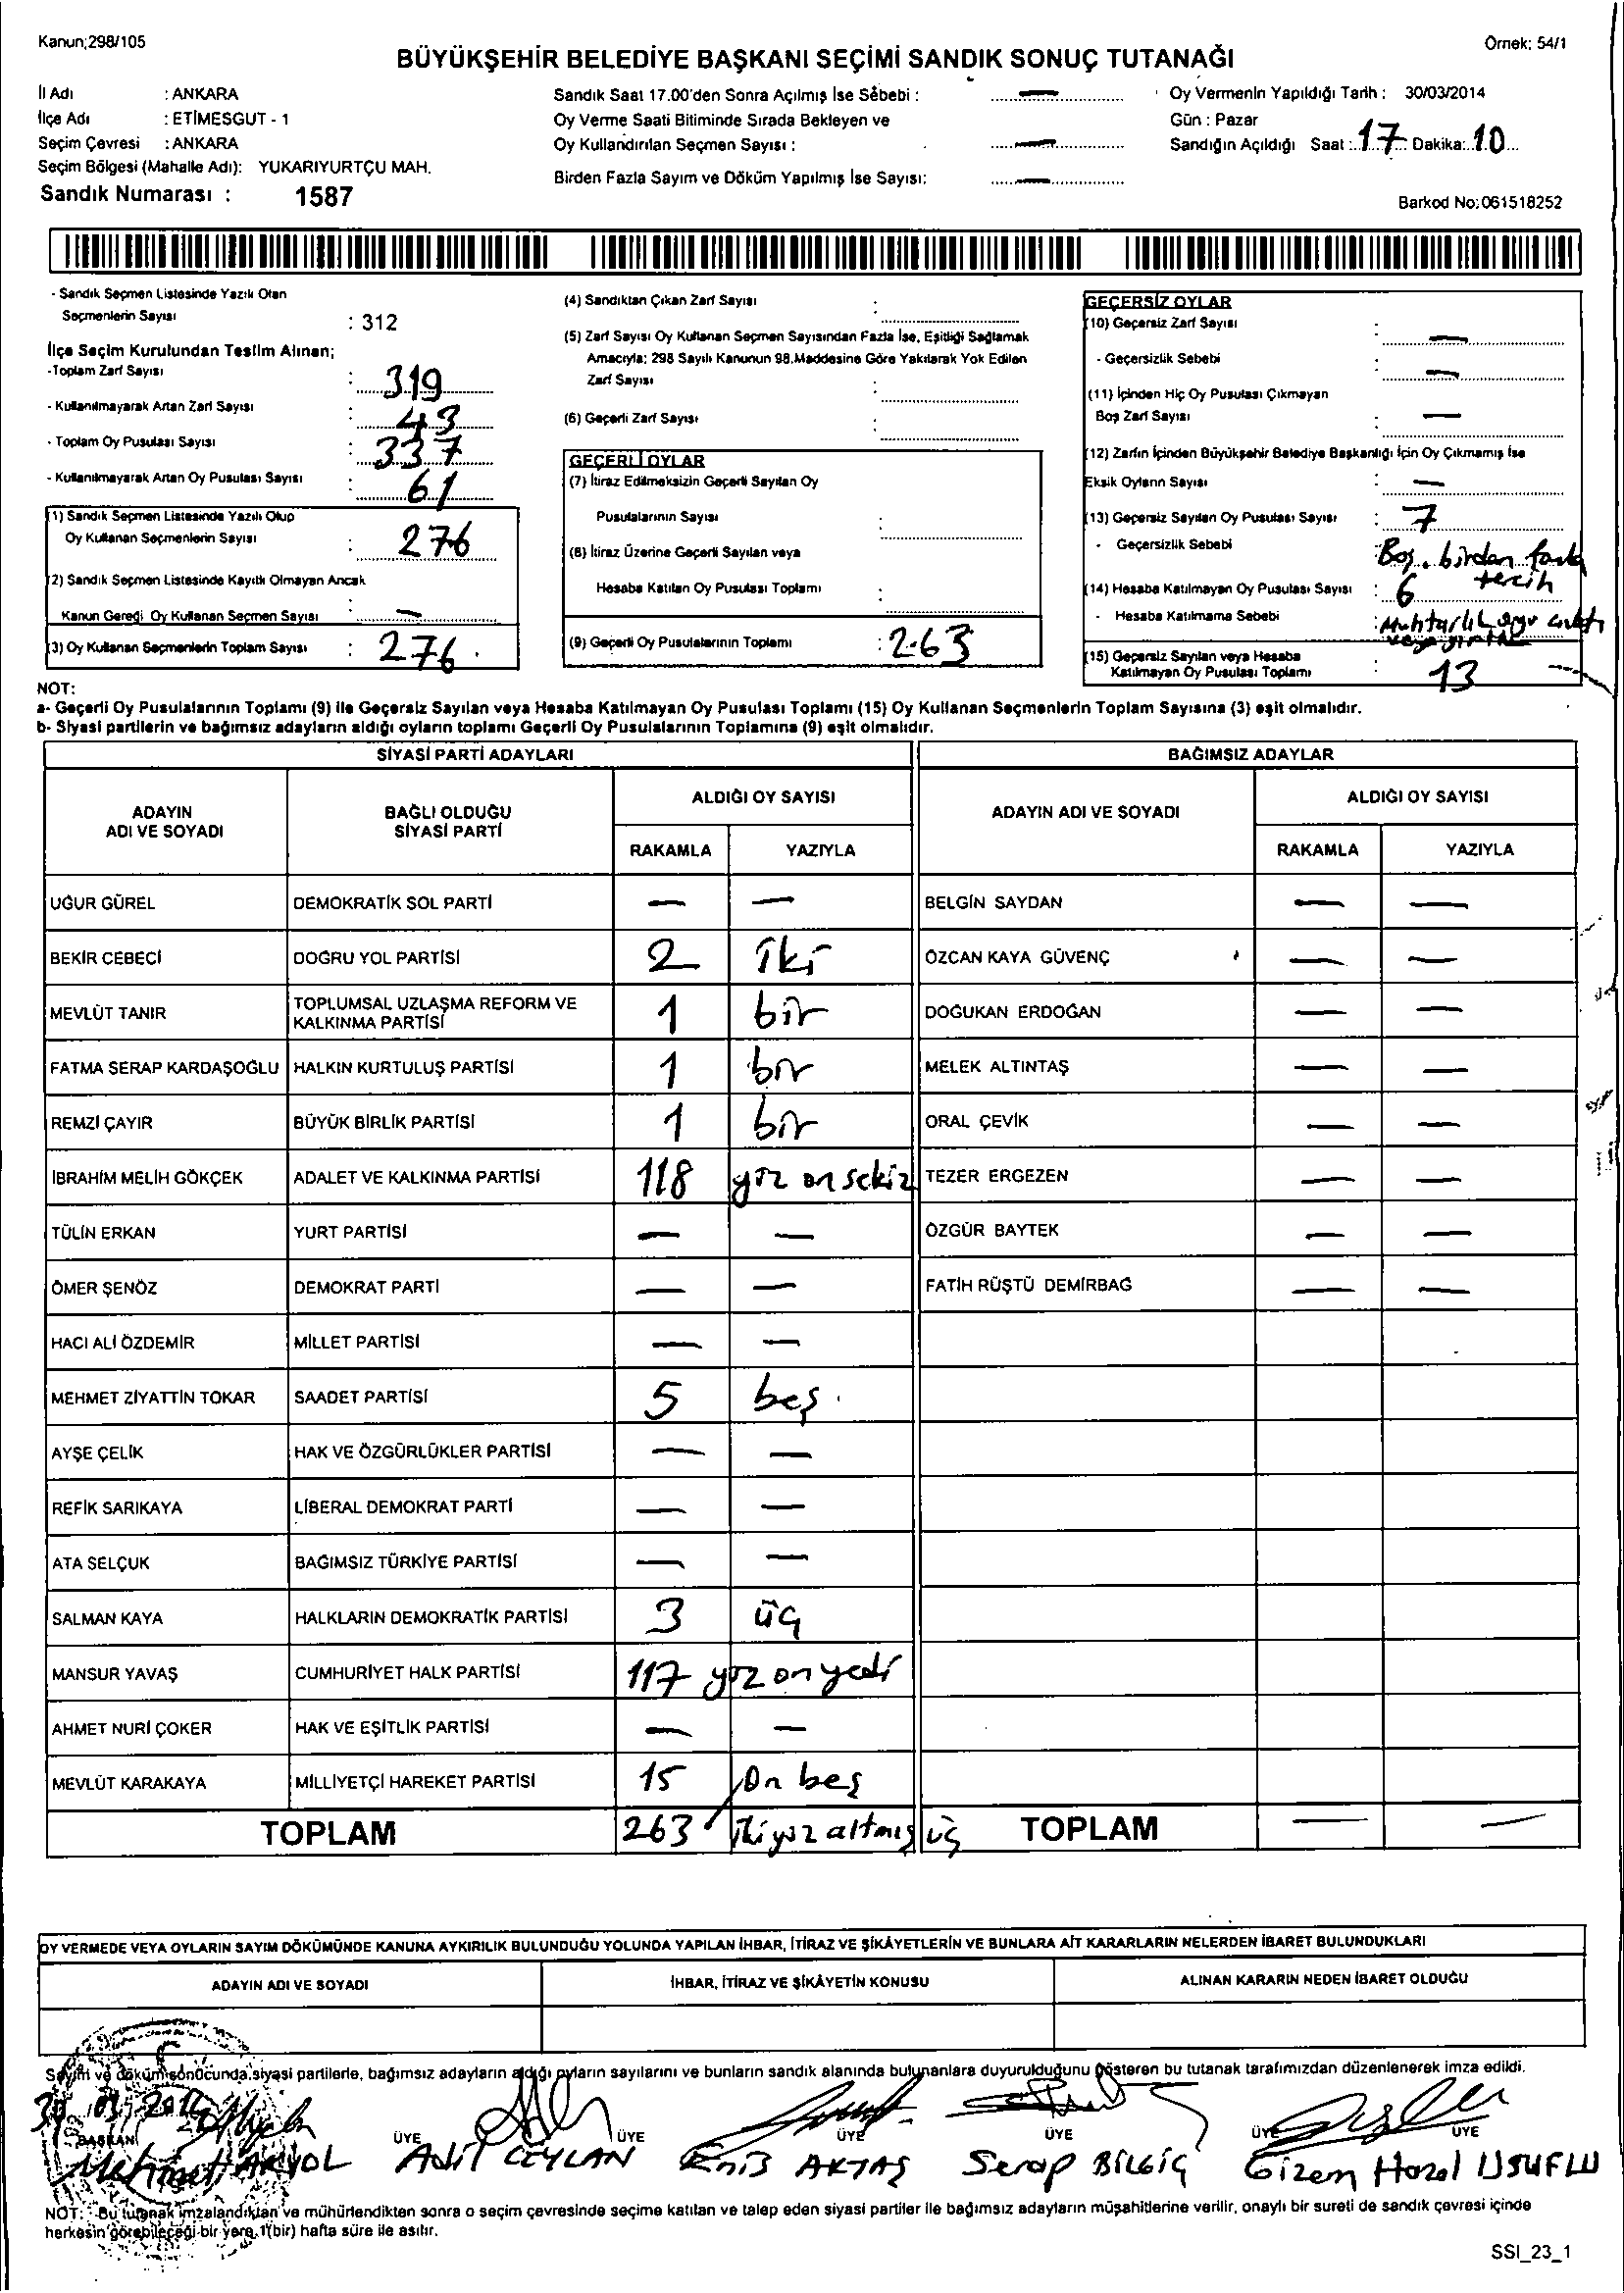 Kanun;298/105
Örnek: 54/1
BÜYÜKŞEHİR BELEDİYE BAŞKANI SEÇİMİ SANDIK SONUÇ TUTANAĞI
İl Adı : ANKARA
İlçe Adı : ETİMESGUT - 1
Seçim Çevresi : ANKARA
Seçim Bölgesi (Mahalle Adı): YUKARIYURTÇU MAH.
Sandık Numarası : 1587
Sandık Saat 17.00'den Sonra Açılmış İse Sebebi : —
Oy Verme Saati Bitiminde Sırada Bekleyen ve
Oy Kullandırılan Seçmen Sayısı : —
Birden Fazla Sayım ve Döküm Yapılmış İse Sayısı: —
Oy Vermenin Yapıldığı Tarih : 30/03/2014
Gün : Pazar
Sandığın Açıldığı Saat : 17 Dakika: 10
Barkod No: 061518252
- Sandık Seçmen Listesinde Yazılı Olan
Seçmenlerin Sayısı : 312
İlçe Seçim Kurulundan Teslim Alınan;
-Toplam Zarf Sayısı : 319
- Kullanılmayarak Artan Zarf Sayısı : 43
- Toplam Oy Pusulası Sayısı : 337
- Kullanılmayarak Artan Oy Pusulası Sayısı : 61
(1) Sandık Seçmen Listesinde Yazılı Olup
Oy Kullanan Seçmenlerin Sayısı : 276
(2) Sandık Seçmen Listesinde Kayıtlı Olmayan Ancak
Kanun Gereği Oy Kullanan Seçmen Sayısı : —
(3) Oy Kullanan Seçmenlerin Toplam Sayısı : 276
(4) Sandıktan Çıkan Zarf Sayısı :
(5) Zarf Sayısı Oy Kullanan Seçmen Sayısından Fazla İse, Eşitliği Sağlamak
Amacıyla; 298 Sayılı Kanunun 98.Maddesine Göre Yakılarak Yok Edilen
Zarf Sayısı :
(6) Geçerli Zarf Sayısı :
GEÇERLİ OYLAR
(7) İtiraz Edilmeksizin Geçerli Sayılan Oy
Pusulalarının Sayısı :
(8) İtiraz Üzerine Geçerli Sayılan veya
Hesaba Katılan Oy Pusulası Toplamı :
(9) Geçerli Oy Pusulalarının Toplamı : 263
GEÇERSİZ OYLAR
(10) Geçersiz Zarf Sayısı : —
- Geçersizlik Sebebi : —
(11) İçinden Hiç Oy Pusulası Çıkmayan
Boş Zarf Sayısı : —
(12) Zarfın İçinden Büyükşehir Belediye Başkanlığı İçin Oy Çıkmamış İse
Eksik Oyların Sayısı : —
(13) Geçersiz Sayılan Oy Pusulası Sayısı : 7
- Geçersizlik Sebebi : Boş, birden fazla
tercih
(14) Hesaba Katılmayan Oy Pusulası Sayısı : 6
- Hesaba Katılmama Sebebi : Muhtarlık oyu çıktı
veya yırtık
(15) Geçersiz Sayılan veya Hesaba
Katılmayan Oy Pusulası Toplamı : 13
NOT:
a- Geçerli Oy Pusulalarının Toplamı (9) ile Geçersiz Sayılan veya Hesaba Katılmayan Oy Pusulası Toplamı (15) Oy Kullanan Seçmenlerin Toplam Sayısına (3) eşit olmalıdır.
b- Siyasi partilerin ve bağımsız adayların aldığı oyların toplamı Geçerli Oy Pusulalarının Toplamına (9) eşit olmalıdır.
SİYASİ PARTİ ADAYLARI BAĞIMSIZ ADAYLAR
ADAYIN ADI VE SOYADI BAĞLI OLDUĞU SİYASİ PARTİ ALDIĞI OY SAYISI ADAYIN ADI VE SOYADI ALDIĞI OY SAYISI
RAKAMLA YAZIYLA RAKAMLA YAZIYLA
UĞUR GÜREL DEMOKRATİK SOL PARTİ — — BELGİN SAYDAN — —
BEKİR CEBECİ DOĞRU YOL PARTİSİ 2 iki ÖZCAN KAYA GÜVENÇ — —
MEVLÜT TANIR TOPLUMSAL UZLAŞMA REFORM VE KALKINMA PARTİSİ 1 bir DOĞUKAN ERDOĞAN — —
FATMA SERAP KARDAŞOĞLU HALKIN KURTULUŞ PARTİSİ 1 bir MELEK ALTINTAŞ — —
REMZİ ÇAYIR BÜYÜK BİRLİK PARTİSİ 1 bir ORAL ÇEVİK — —
İBRAHİM MELİH GÖKÇEK ADALET VE KALKINMA PARTİSİ 118 yüz on sekiz TEZER ERGEZEN — —
TÜLİN ERKAN YURT PARTİSİ — — ÖZGÜR BAYTEK — —
ÖMER ŞENÖZ DEMOKRAT PARTİ — — FATİH RÜŞTÜ DEMİRBAĞ — —
HACI ALİ ÖZDEMİR MİLLET PARTİSİ — —
MEHMET ZİYATTİN TOKAR SAADET PARTİSİ 5 beş
AYŞE ÇELİK HAK VE ÖZGÜRLÜKLER PARTİSİ — —
REFİK SARIKAYA LİBERAL DEMOKRAT PARTİ — —
ATA SELÇUK BAĞIMSIZ TÜRKİYE PARTİSİ — —
SALMAN KAYA HALKLARIN DEMOKRATİK PARTİSİ 3 üç
MANSUR YAVAŞ CUMHURİYET HALK PARTİSİ 117 yüz on yedi
AHMET NURİ ÇOKER HAK VE EŞİTLİK PARTİSİ — —
MEVLÜT KARAKAYA MİLLİYETÇİ HAREKET PARTİSİ 15 On beş
TOPLAM 263 iki yüz altmış üç TOPLAM — —
OY VERMEDE VEYA OYLARIN SAYIM DÖKÜMÜNDE KANUNA AYKIRILIK BULUNDUĞU YOLUNDA YAPILAN İHBAR, İTİRAZ VE ŞİKÂYETLERİN VE BUNLARA AİT KARARLARIN NELERDEN İBARET BULUNDUKLARI
ADAYIN ADI VE SOYADI İHBAR, İTİRAZ VE ŞİKÂYETİN KONUSU ALINAN KARARIN NEDEN İBARET OLDUĞU
Sayım ve döküm sonucunda, siyasi partilerle, bağımsız adayların aldığı oyların sayılarını ve bunların sandık alanında bulunanlara duyurulduğunu gösteren bu tutanak tarafımızdan düzenlenerek imza edildi.
30/03/2014
BAŞKAN ÜYE ÜYE ÜYE ÜYE ÜYE ÜYE
Mehmet AKYOL Adil CEYLAN Enis AKTAŞ Serap BİLGİÇ Gizem Hazal USUFLU
NOT: Bu tutanak imzalandıktan ve mühürlendikten sonra o seçim çevresinde seçime katılan ve talep eden siyasi partiler ile bağımsız adayların müşahitlerine verilir, onaylı bir sureti de sandık çevresi içinde
herkesin görebileceği bir yere, 1(bir) hafta süre ile asılır.
SSI_23_1